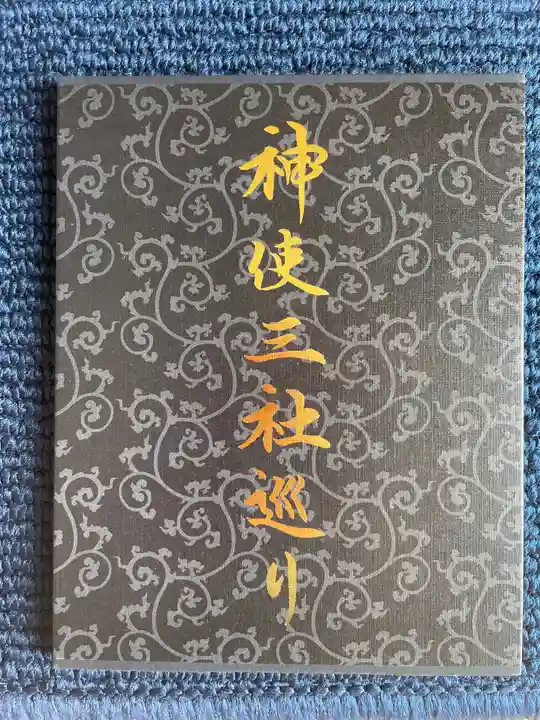 神使三社巡り